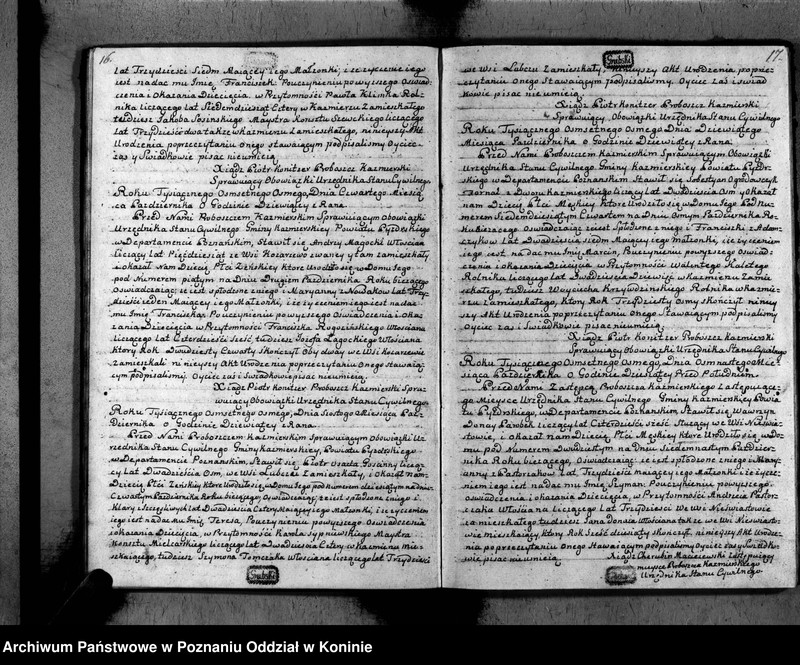 16.
lat Trzydzieści Siedm Maiącey iego Małzonki, i ze zyczenie iego
iest nadać mu Imię Franciszek. Po uczynieniu powyzszego Oświad-
czenia i Okazania Dziecięcia w Przytomności Pawła Klimka Rol-
nika liczącego lat Siedemdziesiąt Cztery w Kazmierzu Zamieszkałego
tudziesz Jakoba Sosinskiego Maystra Konsztu Szewskiego liczącego
lat Trzydzieści dwa także w Kazmierzu Zamieszkałego, ni nieyszy Akt
Urodzenia poprzeczytaniu onego stawaiącym podpisalismy Oyciec
zaś y Świadkowie pisać nieumieią.
Xiądz Piotr Konitzer Proboszcz Kazmierski
Sprawuiący Obowiązki Urzędnika Stanu Cywilnego.
Roku Tysiącznego Osmsetnego Osmego, Dnia Czwartego Miesią-
ca Pazdziernika o Godzinie Dziewiątey z Rana.
Przed Nami Proboszczem Kazmierskim Sprawuiącym Obowiązki
Urzędnika Stanu Cywilnego Gminy Kazmierskiey Powiatu Pyzdrskiego
w Departamencie Poznańskim, Stawił się Andrzey Magocki Włościan
liczący lat Pięćdziesiąt ze Wsi Kozarzewo zwaney y tam zamieszkały
i okazał Nam Dziecię Płci Zeńskiey ktore Urodziło się w Domu Iego
pod Numerem piątym na Dniu Drugiem Pazdziernika Roku bieżącego
Oświadczaiąc: ze iest spłodzone z niego i Maryanny z Nowaków lat Trzy-
dzieści ieden Maiącey iego Małzonki, i ze zyczeniem iego iest nadać
mu Imię Franciszka. Po uczynieniu powyzszego Oświadczenia i Oka-
zania Dziecięcia w Przytomności Franciszka Rogozińskiego Włościana
liczącego lat Czterdzieści Sześć, tudziesz Jozefa Łagockiego Włościana
ktory Rok Dwudziesty Czwarty Skończył Obydway we Wsi Kozarzewie
Zamieszkali ni nieyszy Akt Urodzenia poprzeczytaniu Onego stawaią-
cym podpisalismy. Oyciec zaś i Świadkowie pisać nieumieią.
Xiądz Piotr Konitzer Proboszcz Kazmierski Spra-
wuiący Obowiązki Urzędnika Stanu Cywilnego.
Roku Tysiącznego Osmsetnego Osmego, Dnia Siostego Miesiąca Paź-
dziernika o Godzinie Dziewiątey z Rana.
Przed Nami Proboszczem Kazmierskim Sprawuiącym Obowiązki Ur-
zędnika Stanu Cywilnego Gminy Kazmierskiey, Powiatu Pyzdrskiego
w Departamencie Poznańskim, Stawił się Piotr Gościnny liczą-
cy lat Dwadzieścia Osm, we Wsi Lubczu Zamieszkały, i okazał Nam
Dziecię Płci Zeńskiey ktore Urodziło się w Domu Iego pod Numerem dziewiątym na Dniu
Czwartym Pazdziernika Roku bieżącego, Oświadczaiąc, ze iest spłodzone z niego i
Klary z Szczęsliwych lat Dwadzieścia Cztery Maiącey iego Małzonki, i ze zyczeniem
iego iest nadać mu Imię Teresa. Po uczynieniu powyzszego Oświadczenia
i okazania Dziecięcia, w Przytomności Karola Sypniewskiego Maystra
Konsztu Mielcarskiego liczącego lat Dwadzieścia Cztery w Kazmierzu Mie-
szkaiącego, tudziesz Szymona Tomczaka Włościana liczącego lat Trzydzieści
17.
we Wsi Lubczu Zamieszkały, ni nieyszy Akt Urodzenia poprze-
czytaniu Onego Stawaiącym podpisalismy. Oyciec zaś i Świad-
kowie pisać nieumieią.
Xiądz Piotr Konitzer Proboszcz Kazmierski
Sprawuiący Obowiązki Urzędnika Stanu Cywilnego
Roku Tysiącznego Osmsetnego Osmego Dnia Dziewiątego
Miesiąca Pazdziernika o Godzinie Dziewiątey z Rana.
Przed Nami Proboszczem Kazmierskim Sprawuiącym Obowiązki
Urzędnika Stanu Cywilnego Gminy Kazmierskiey Powiatu Pyzdr-
skiego w Departamencie Poznanskim Stawił się Sebestyan Ogrodowczyk
Fornal z Dworu Kazmierskiego liczący lat Dwadzieścia Osm y okazał
nam Dziecię Płci Męskiey ktore Urodziło się w Domu Iego Pod Nu-
merem Siedmdziesiątym Czwartem na Dniu Osmym Pazdziernika Ro-
ku bieżącego. Oświadczaiąc ze iest Spłodzone z niego i Franciszki z Adam-
czyków lat Dwadzieścia siedm Maiącey iego Małzonki, i ze zyczeniem
iego iest nadać mu Imię Marcin. Po uczynieniu powyzszego Oświad-
czenia i okazania Dziecięcia w Przytomności Walentego Kaletego
Rolnika liczącego lat Dwadzieścia Dziewięć w Kazmierzu Zamie-
szkałego, tudziesz Woyciecha Krzyudzińskiego Rolnika w Kazmie-
rzu Zamieszkałego, ktory Rok Trzydziesty Osmy skończył ni niey-
szy Akt Urodzenia poprzeczytaniu Onego Stawaiącym podpisalismy
Oyciec zaś i Świadkowie pisać nieumieią.
Xiądz Piotr Konitzer Proboszcz Kazmierski
Sprawuiący Obowiązki Urzędnika Stanu Cywilnego
Roku Tysiącznego Osmsetnego Osmego, Dnia Osmnastego Mie-
siąca Pazdziernika o Godzinie Dziesiątey Przed Południem.
Przed Nami Zastępcą Proboszcza Kazmierskiego Zastępuiące-
go Mieysce Urzędnika Stanu Cywilnego Gminy Kazmierskiey Powia-
tu Pyzdrskiego, w Departamencie Poznanskim Stawił się Wawrzyn
Dunay Parobek liczący lat Czterdzieści sześć Służący we Wsi Nieświa-
stowie, i okazał Nam Dziecię Płci Męskiey ktore Urodziło się w Do-
mu pod Numerem Dwudziestym na Dniu Siedemnastym Pazdzier-
nika Roku bieżącego, Oświadczaiąc ze iest spłodzone z niego i Mary-
anny z Pasturiaków lat Trzydzieści maiącey iego Małzonki i ze zycze-
niem iego iest nadać mu Imię Szyman. Po uczynieniu powyzszego
oświadczenia i okazania Dziecięcia, w Przytomności Andrzeia Pastor-
czaka Włościana liczącego lat Trzydzieści We Wsi Nieświastowie
zamieszkałego tudziesz Jana Donaia Włościana także we Wsi Nieświasto-
wie mieszkaiący, ktory Rok Sześćdziesiąty skończył, ni nieyszy Akt Urodze-
nia poprzeczytaniu Onego Stawaiącym podpisalismy Oyciec zaś y Świadko-
wie pisać nieumieią. Xiądz Cherubin Maciejewski zastępuiący
mieysce Proboszcza Kazmierskiego
Urzędnika Stanu Cywilnego.
Archiwum Państwowe w Poznaniu Oddział w Koninie